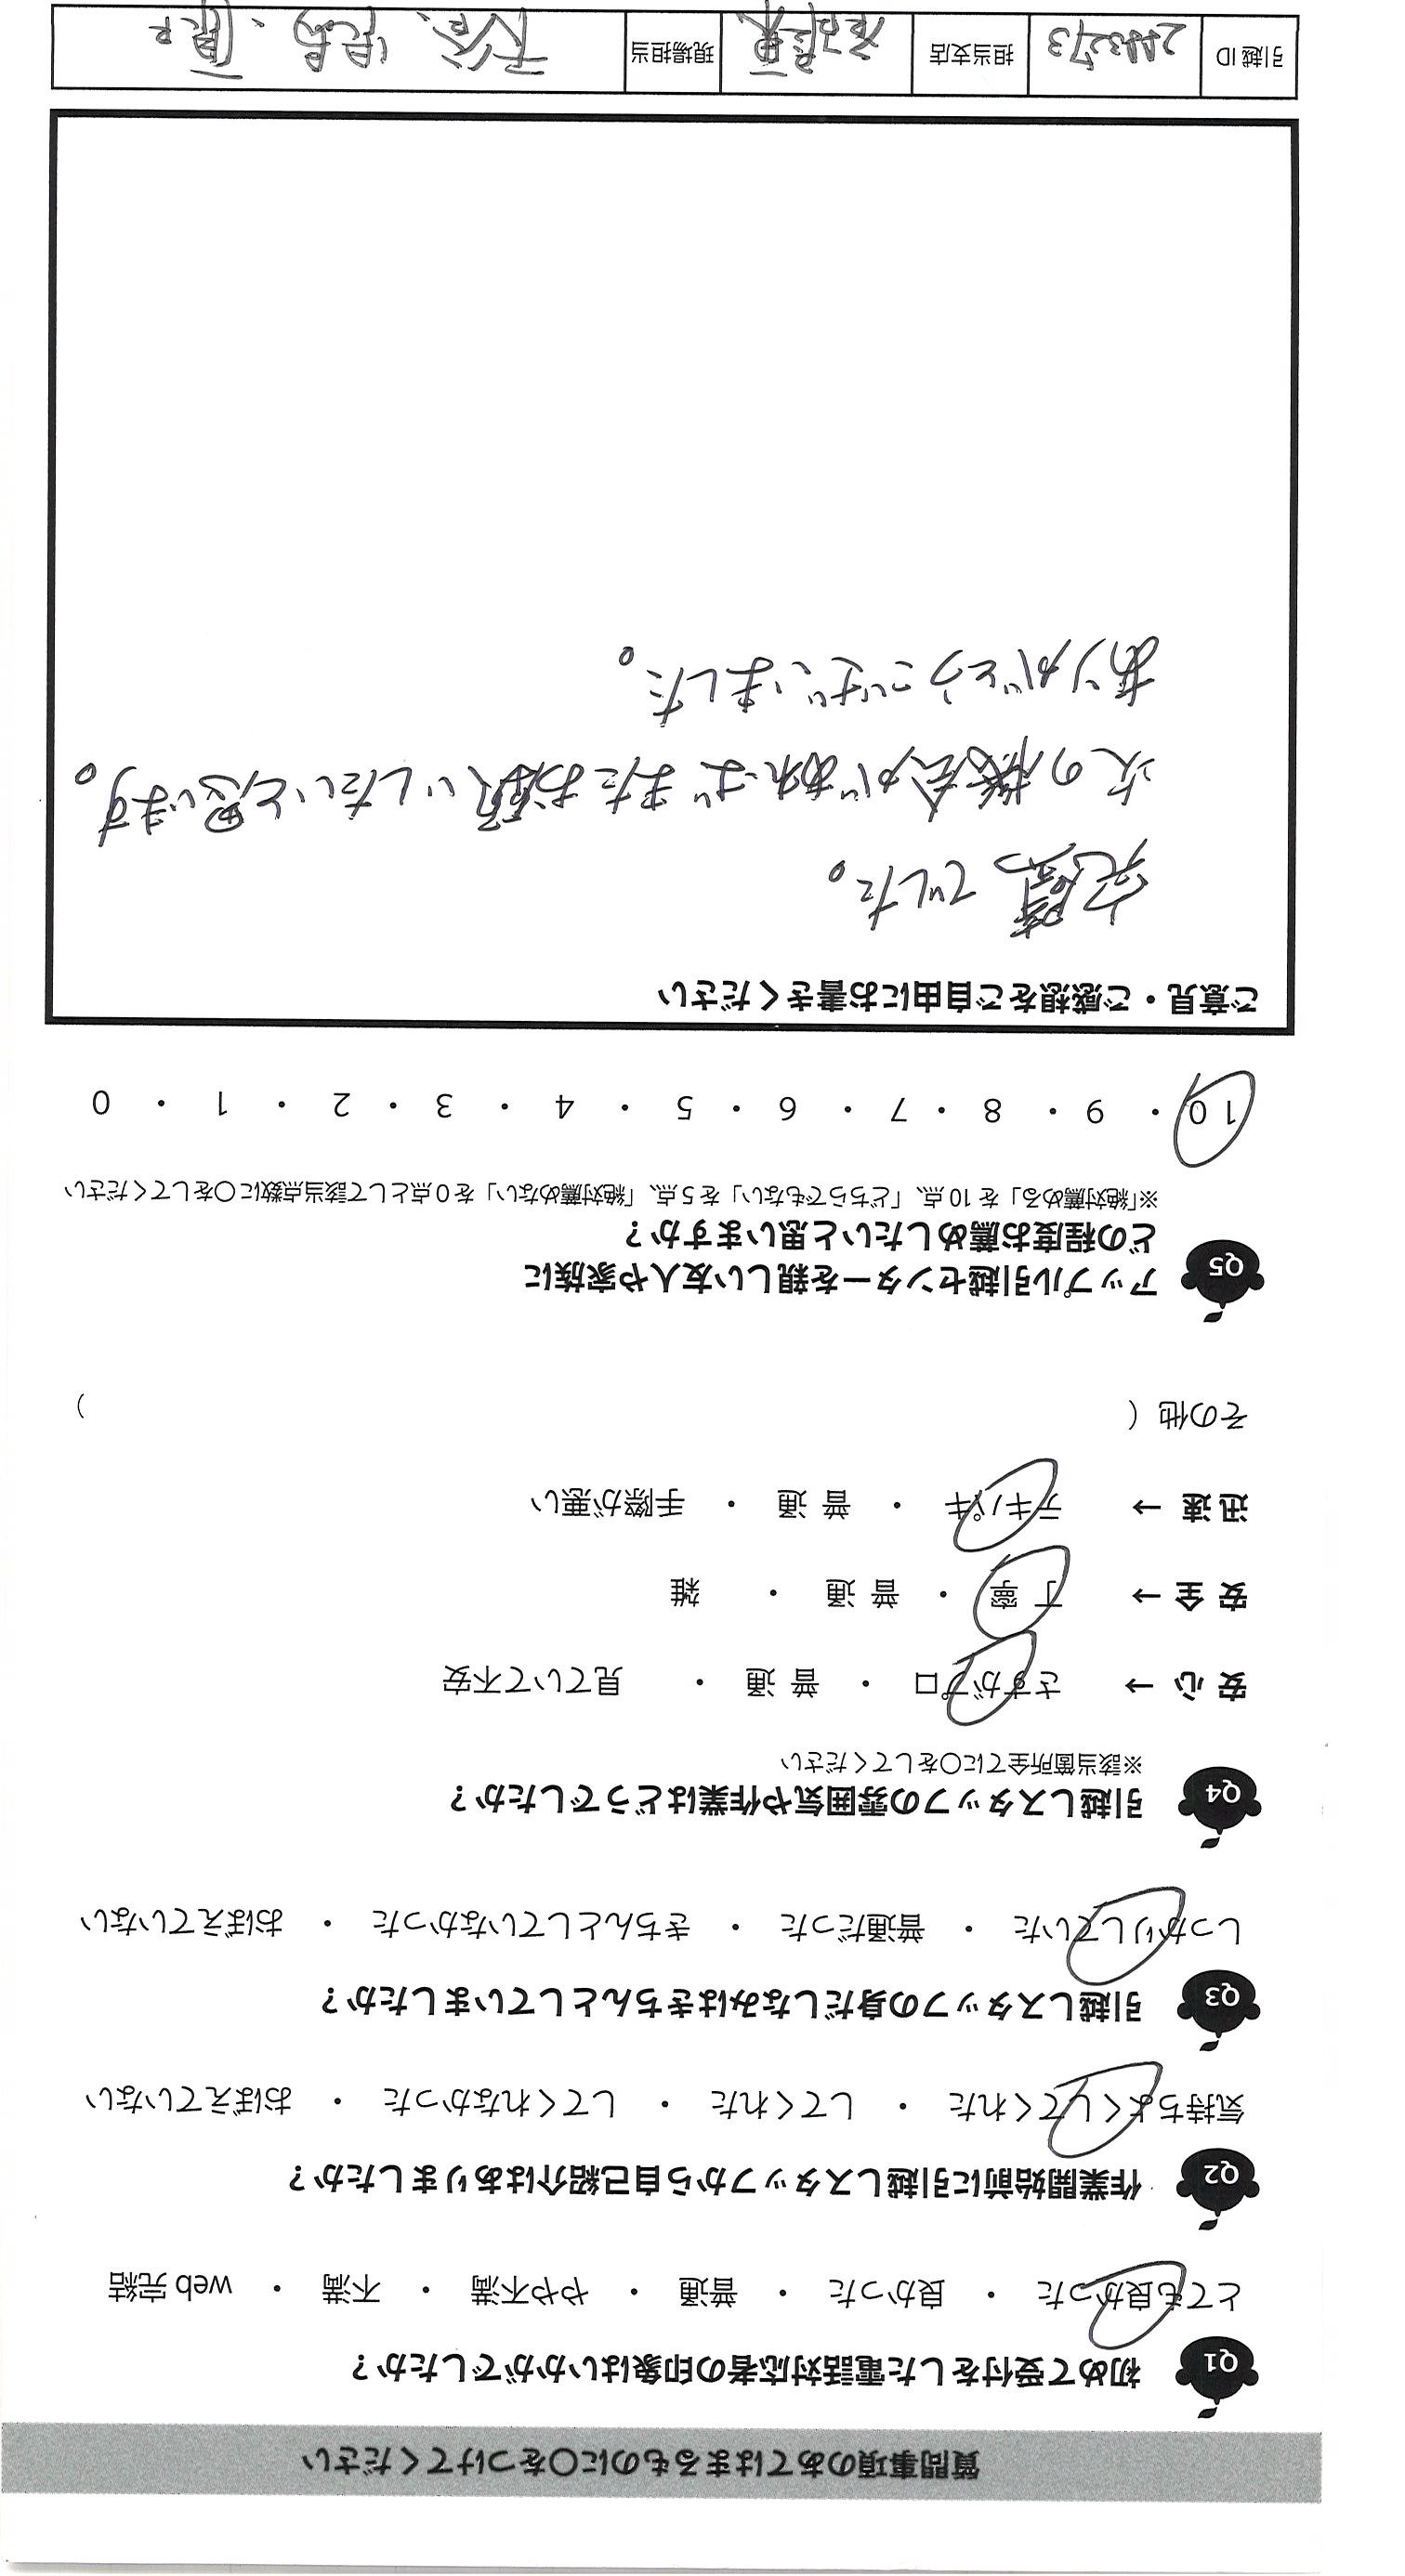 質問事項のあてはまるものに〇をつけてください
Q1 初めて受付をした電話対応者の印象はいかがでしたか?
とても良かった ・ 良かった ・ 普通 ・ やや不満 ・ 不満 ・ web 完結
Q2 作業開始前に引越しスタッフから自己紹介はありましたか?
気持ちよくしてくれた ・ してくれた ・ してくれなかった ・ おぼえていない
Q3 引越しスタッフの身だしなみはきちんとしていましたか?
しっかりしていた ・ 普通だった ・ きちんとしていなかった ・ おぼえていない
Q4 引越しスタッフの雰囲気や作業はどうでしたか?
※該当箇所全てに〇をしてください
安 心 → さすがプロ ・ 普 通 ・ 見ていて不安
安 全 → 丁 寧 ・ 普 通 ・ 雑
迅 速 → テキパキ ・ 普 通 ・ 手際が悪い
その他 ( )
Q5 アップル引越センターを親しい友人や家族に
どの程度お薦めしたいと思いますか?
※「絶対薦める」を 10 点、「どちらでもない」を 5 点、「絶対薦めない」を 0 点として該当点数に〇をしてください
10 ・ 9 ・ 8 ・ 7 ・ 6 ・ 5 ・ 4 ・ 3 ・ 2 ・ 1 ・ 0
ご意見・ご感想をご自由にお書きください
完璧でした。
次の機会があればまたお願いしたいと思います。
ありがとうございました。
引越 ID 担当支店 現場担当